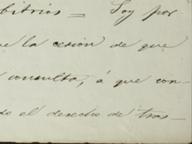 bitrios = Soy por
e la cesion de que
consulta, á que con-
do el derecho de tras-